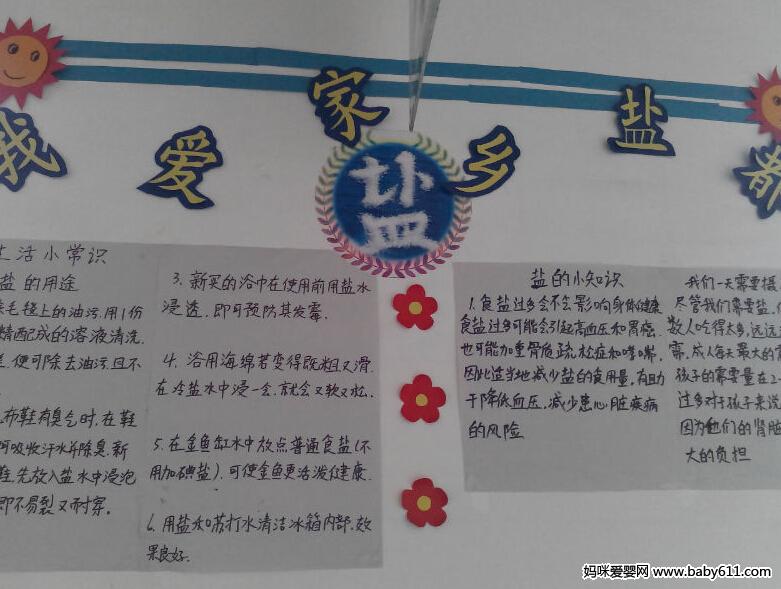 我爱家乡盐都
盐
生活小常识
盐的用途
毛毯上的油污,用1份
精配成的溶液清洗
便可除去油污,且不
布鞋有臭气时,在鞋
可吸收汗水并除臭,新
鞋,先放入盐水中浸泡
即不易裂又耐穿。
3. 新买的浴巾在使用前用盐水
浸透,即可预防其发霉.
4. 浴用海绵若变得既粗又滑
在冷盐水中浸一会,就会又软又松.
5. 在金鱼缸水中放点普通食盐(不
用加碘盐),可使金鱼更活泼健康
6. 用盐水和苏打水清洁冰箱内部,效
果良好.
盐的小知识
1.食盐过多会不会影响身体健康
食盐过多可能会引起高血压和胃癌.
也可能加重骨质疏松症和哮喘,
因此适当地减少盐的食用量,有助
于降低血压,减少患心脏疾病
的风险
我们一天需要摄
尽管我们需要盐,
数人吃得太多,远远
需,成人每天最大的
孩子的需要量在2-
过多对于孩子来说
因为他们的肾脏
大的负担
妈咪爱婴网 www.baby611.com